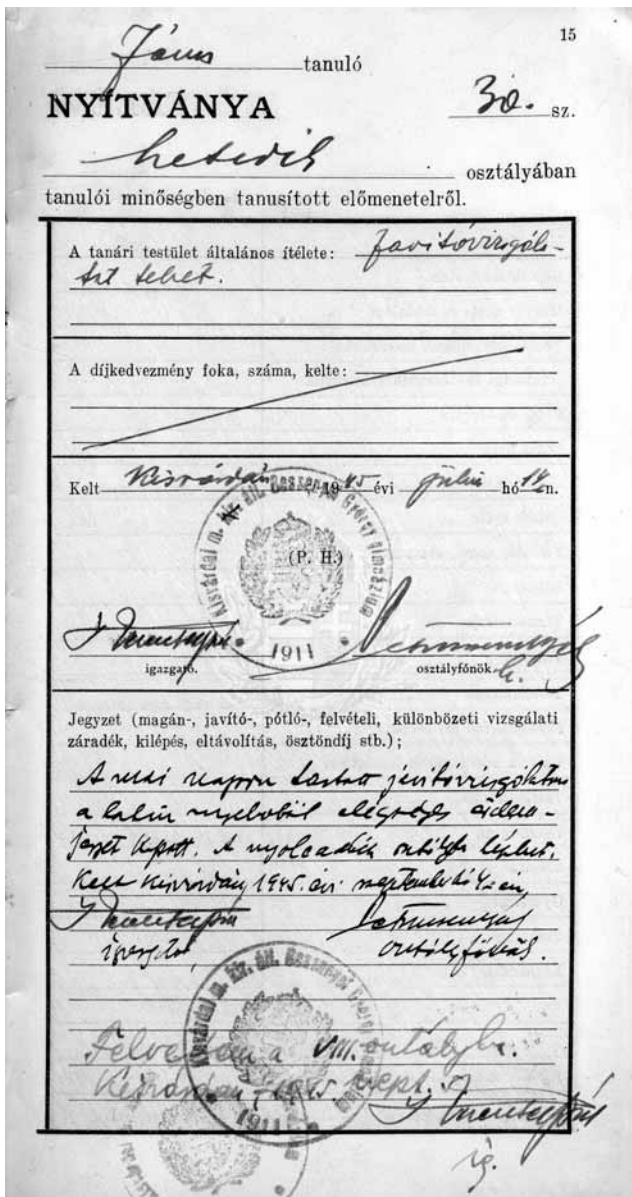 15
János tanuló
NYÍTVÁNYA 30. sz.
hetedik osztályában
tanulói minőségben tanusított előmenetelről.
A tanári testület általános ítélete: Javítóvizsgála-
tot tehet.
A díjkedvezmény foka, száma, kelte:
Kelt Kisvárdán 1945 évi július hó 14n.
Kisvárdai m. kir. áll. Bessenyei György gimnázium
(P. H.)
1911
igazgató. osztályfőnök.
h.
Jegyzet (magán-, javító-, pótló-, felvételi, különbözeti vizsgálati
záradék, kilépés, eltávolítás, ösztöndíj stb.);
A mai napon tartott javítóvizsgálaton
a latin nyelvből elégséges érdem-
jegyet kapott. A nyolcadik osztályba léphet.
Kelt Kisvárdán, 1945. évi szeptember hó 4-én,
igazgató, osztályfőnök.
Kisvárdai m. kir. áll. Bessenyei György gimnázium
Felvettem a VIII. osztályba.
Kisvárdán, 1945. szept. 5.
1911
ig.